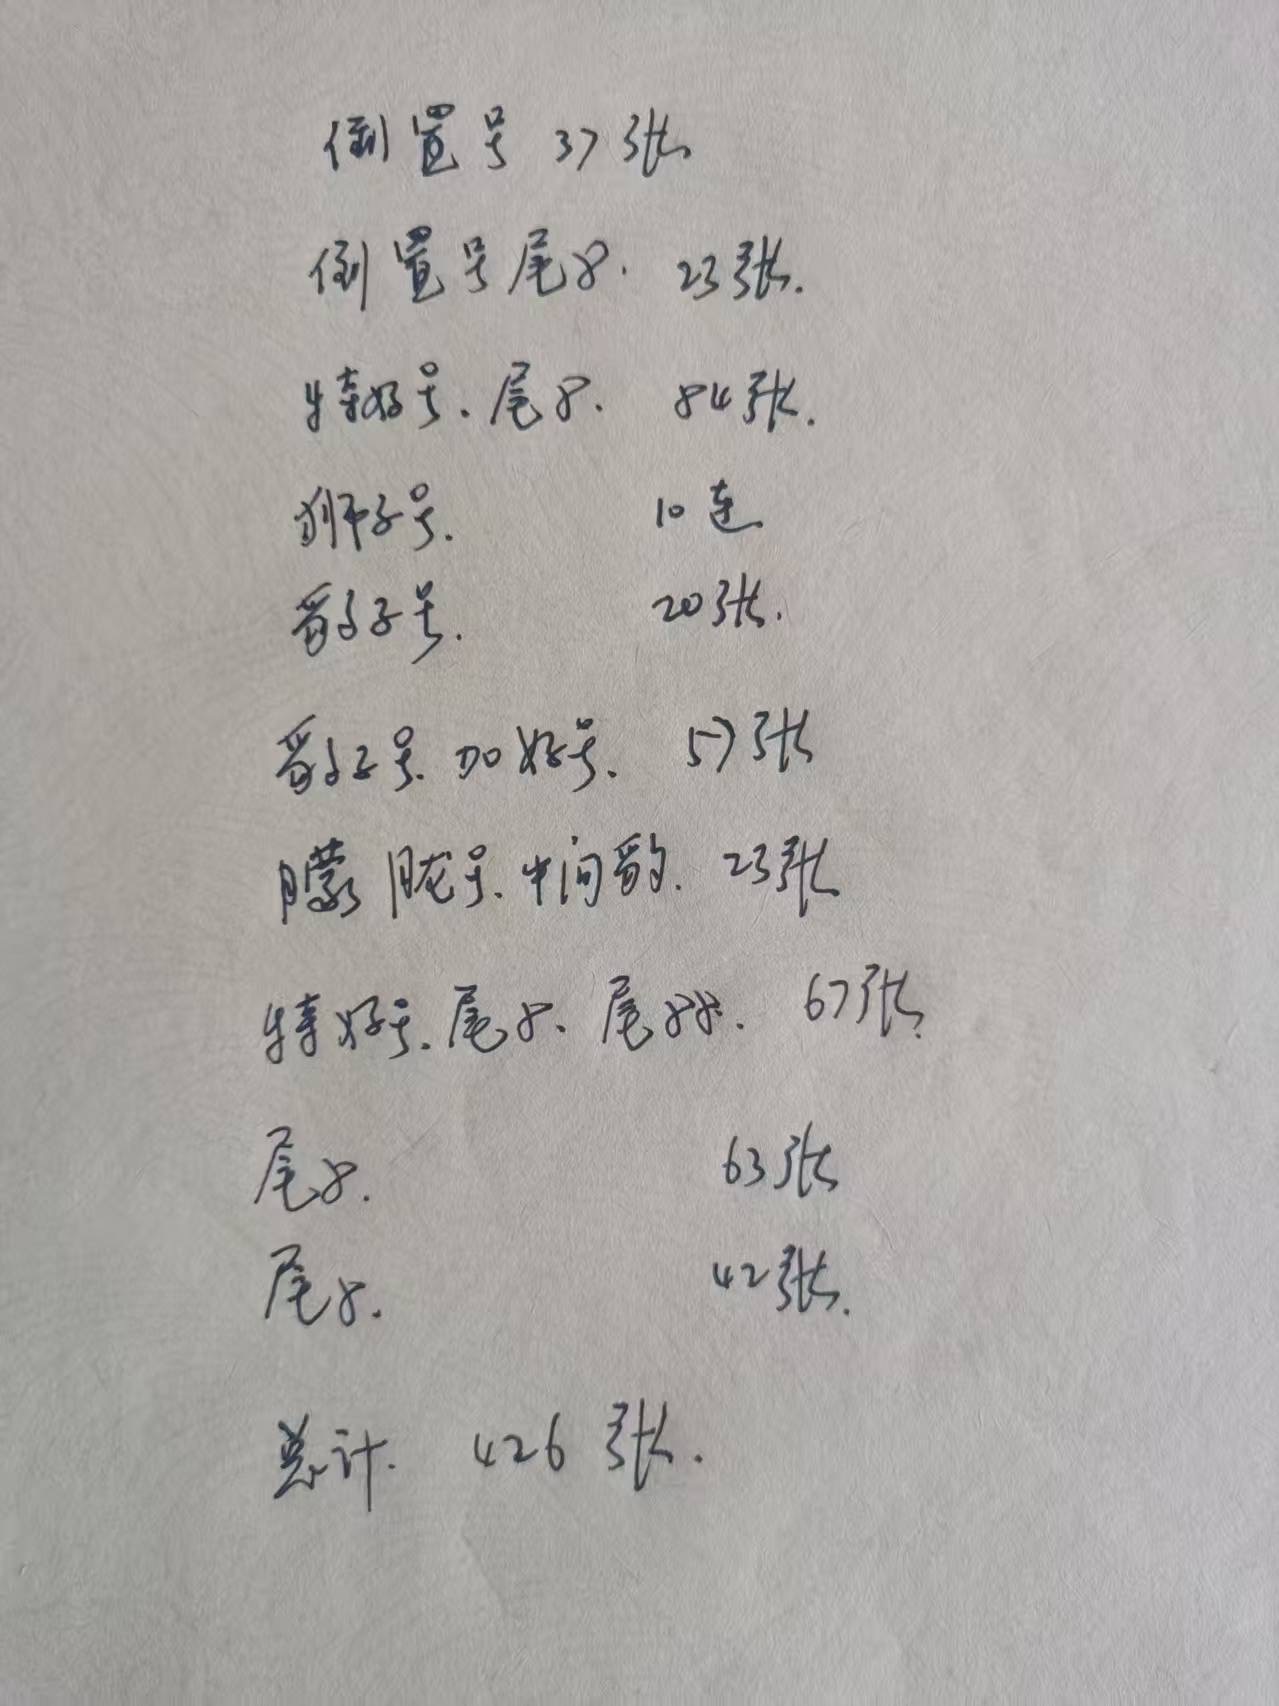 倒置号 37张
倒置号尾8. 23张.
特好号.尾8. 84张.
狮子号. 10连
豹子号. 20张.
豹子号.加好号. 57张
朦胧号.中间豹. 23张
特好号.尾8、尾88. 67张.
尾8. 63张
尾8. 42张.
总计. 426张.